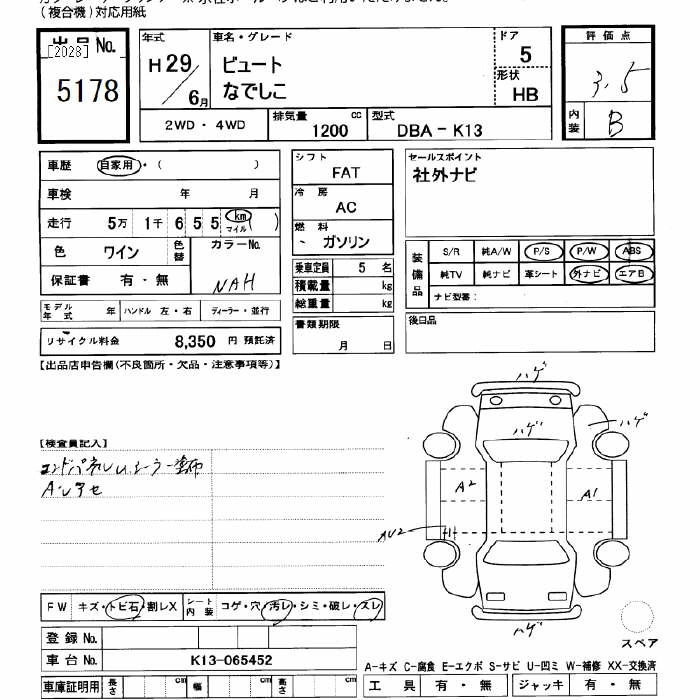 (複合機)対応用紙
出品No.
[2028]
5178
年式
H29/6月
車名・グレード
ビュート
なでしこ
ドア
5
形状
HB
評価点
3.5
内装
B
2WD・4WD
排気量
cc
1200
型式
DBA-K13
車歴 自家用・( )
車検 年 月
走行 5万 1千 6 5 5 km マイル ( )
色 ワイン 色替
カラーNo.
NAH
保証書 有・無
モデル年式 年 ハンドル 左・右 ディーラー・並行
リサイクル料金 8,350 円 預託済
シフト
FAT
冷房
AC
燃料
ガソリン
乗車定員 5 名
積載量 kg
総重量 kg
書類期限
月 日
セールスポイント
社外ナビ
装備品
S/R 純A/W P/S P/W ABS
純TV 純ナビ 革シート 外ナビ エアB
ナビ型番:
後日品
【出品店申告欄(不良箇所・欠品・注意事項等)】
【検査員記入】
ハゲ
ハゲ
ハゲ
A2
A1
AU2
ハゲ
FW キズ・トビ石・割レX シート内装 コゲ・穴・汚レ・シミ・破レ・スレ
登録No.
車台No. K13-065452
車庫証明用 長さ cm 幅 cm 高さ cm
スペア
A-キズ C-腐食 E-エクボ S-サビ U-凹ミ W-補修 XX-交換済
工具 有・無 ジャッキ 有・無